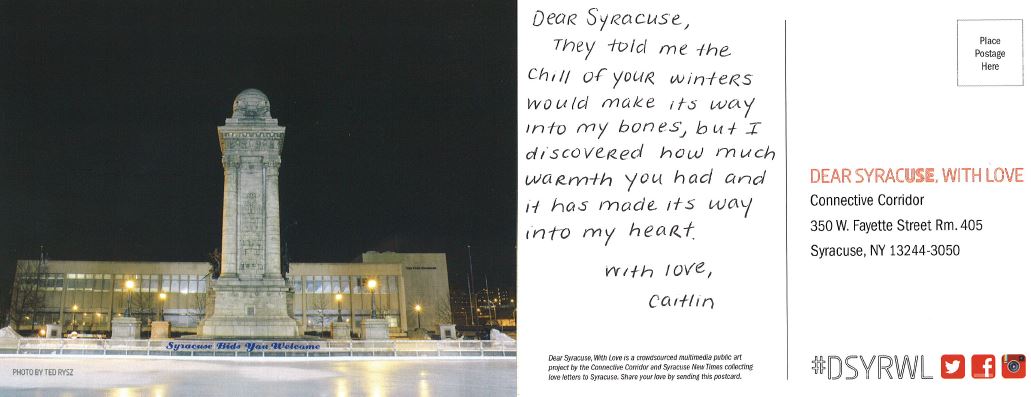 Syracuse Bids You Welcome
PHOTO BY TED RYSZ
Dear Syracuse,
They told me the
chill of your winters
would make its way
into my bones, but I
discovered how much
warmth you had and
it has made its way
into my heart.
With love,
Caitlin
Dear Syracuse, With Love is a crowdsourced multimedia public art
project by the Connective Corridor and Syracuse New Times collecting
love letters to Syracuse. Share your love by sending this postcard.
Place
Postage
Here
DEAR SYRACUSE, WITH LOVE
Connective Corridor
350 W. Fayette Street Rm. 405
Syracuse, NY 13244-3050
#DSYRWL